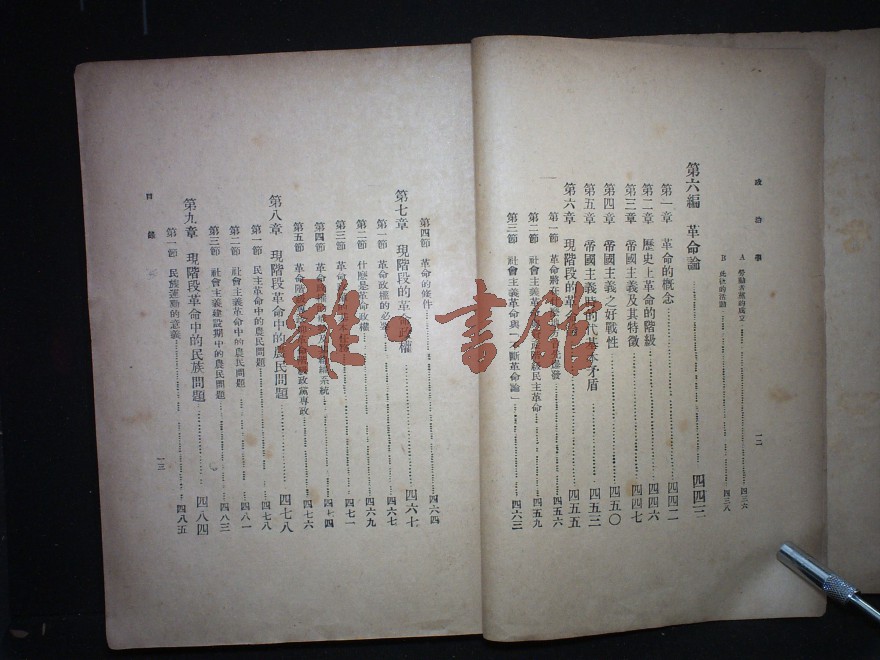 政治學
A 勞動者黨的成立 四三六
B 此後的活動 四三八
第六編 革命論 四四二
第一章 革命的概念 四四二
第二章 歷史上革命的階級 四四六
第三章 帝國主義及其特徵 四四七
第四章 帝國主義之好戰性 四五〇
第五章 帝國主義時代的基本矛盾 四五三
第六章 現階段的革命 四五五
第一節 革命將在 爆發 四五六
第二節 社會主義革命與 民主革命 四五九
第三節 社會主義革命與「不斷革命論」 四六三
一二
第四節 革命的條件 四六四
第七章 現階段的革命政權 四六七
第一節 革命政權的必要 四六七
第二節 什麼是革命政權 四六九
第三節 革命 四七一
第四節 革命政權 系統 四七四
第五節 革命階級專政 政黨專政 四七六
第八章 現階段革命中的農民問題 四七八
第一節 民主革命中的農民問題 四七八
第二節 社會主義革命中的農民問題 四八一
第三節 社會主義建設期中的農民問題 四八三
第九章 現階段革命中的民族問題 四八四
第一節 民族運動的意義 四八五
目錄
一三
雜·書館